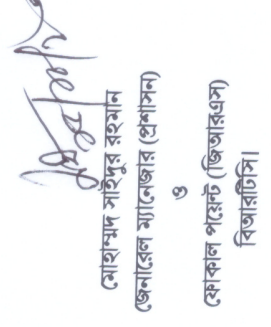 মোহাম্মদ সাইদুর রহমান
জেনারেল ম্যানেজার (প্রশাসন)
ও
ফোকাল পয়েন্ট (জিআরএস)
বিআরটিসি।